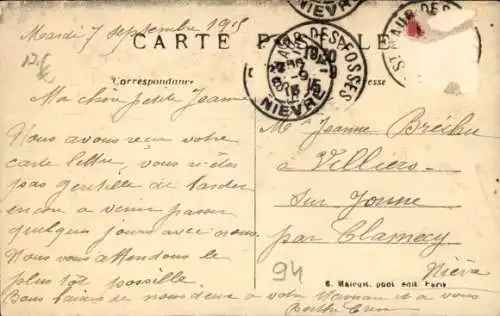 Mardi 7 septembre 1915
CARTE POSTALE
NIEVRE
ST MAUR-DES-FOSSES
NIEVRE
ST MAUR-DES
Correspondance
Ma chère petite Jeanne
Nous avons reçu votre
carte lettre, vous n'êtes
pas gentille de tarder
encore à venir passer
quelques jours avec nous.
Nous vous attendons le
plus tôt possible.
Bons baisers de nous deux à votre Maman et à vous
Berthe
Mle Jeanne
à Villiers
sur Yonne
par Clamecy
Nièvre
94
phot. édit. Paris